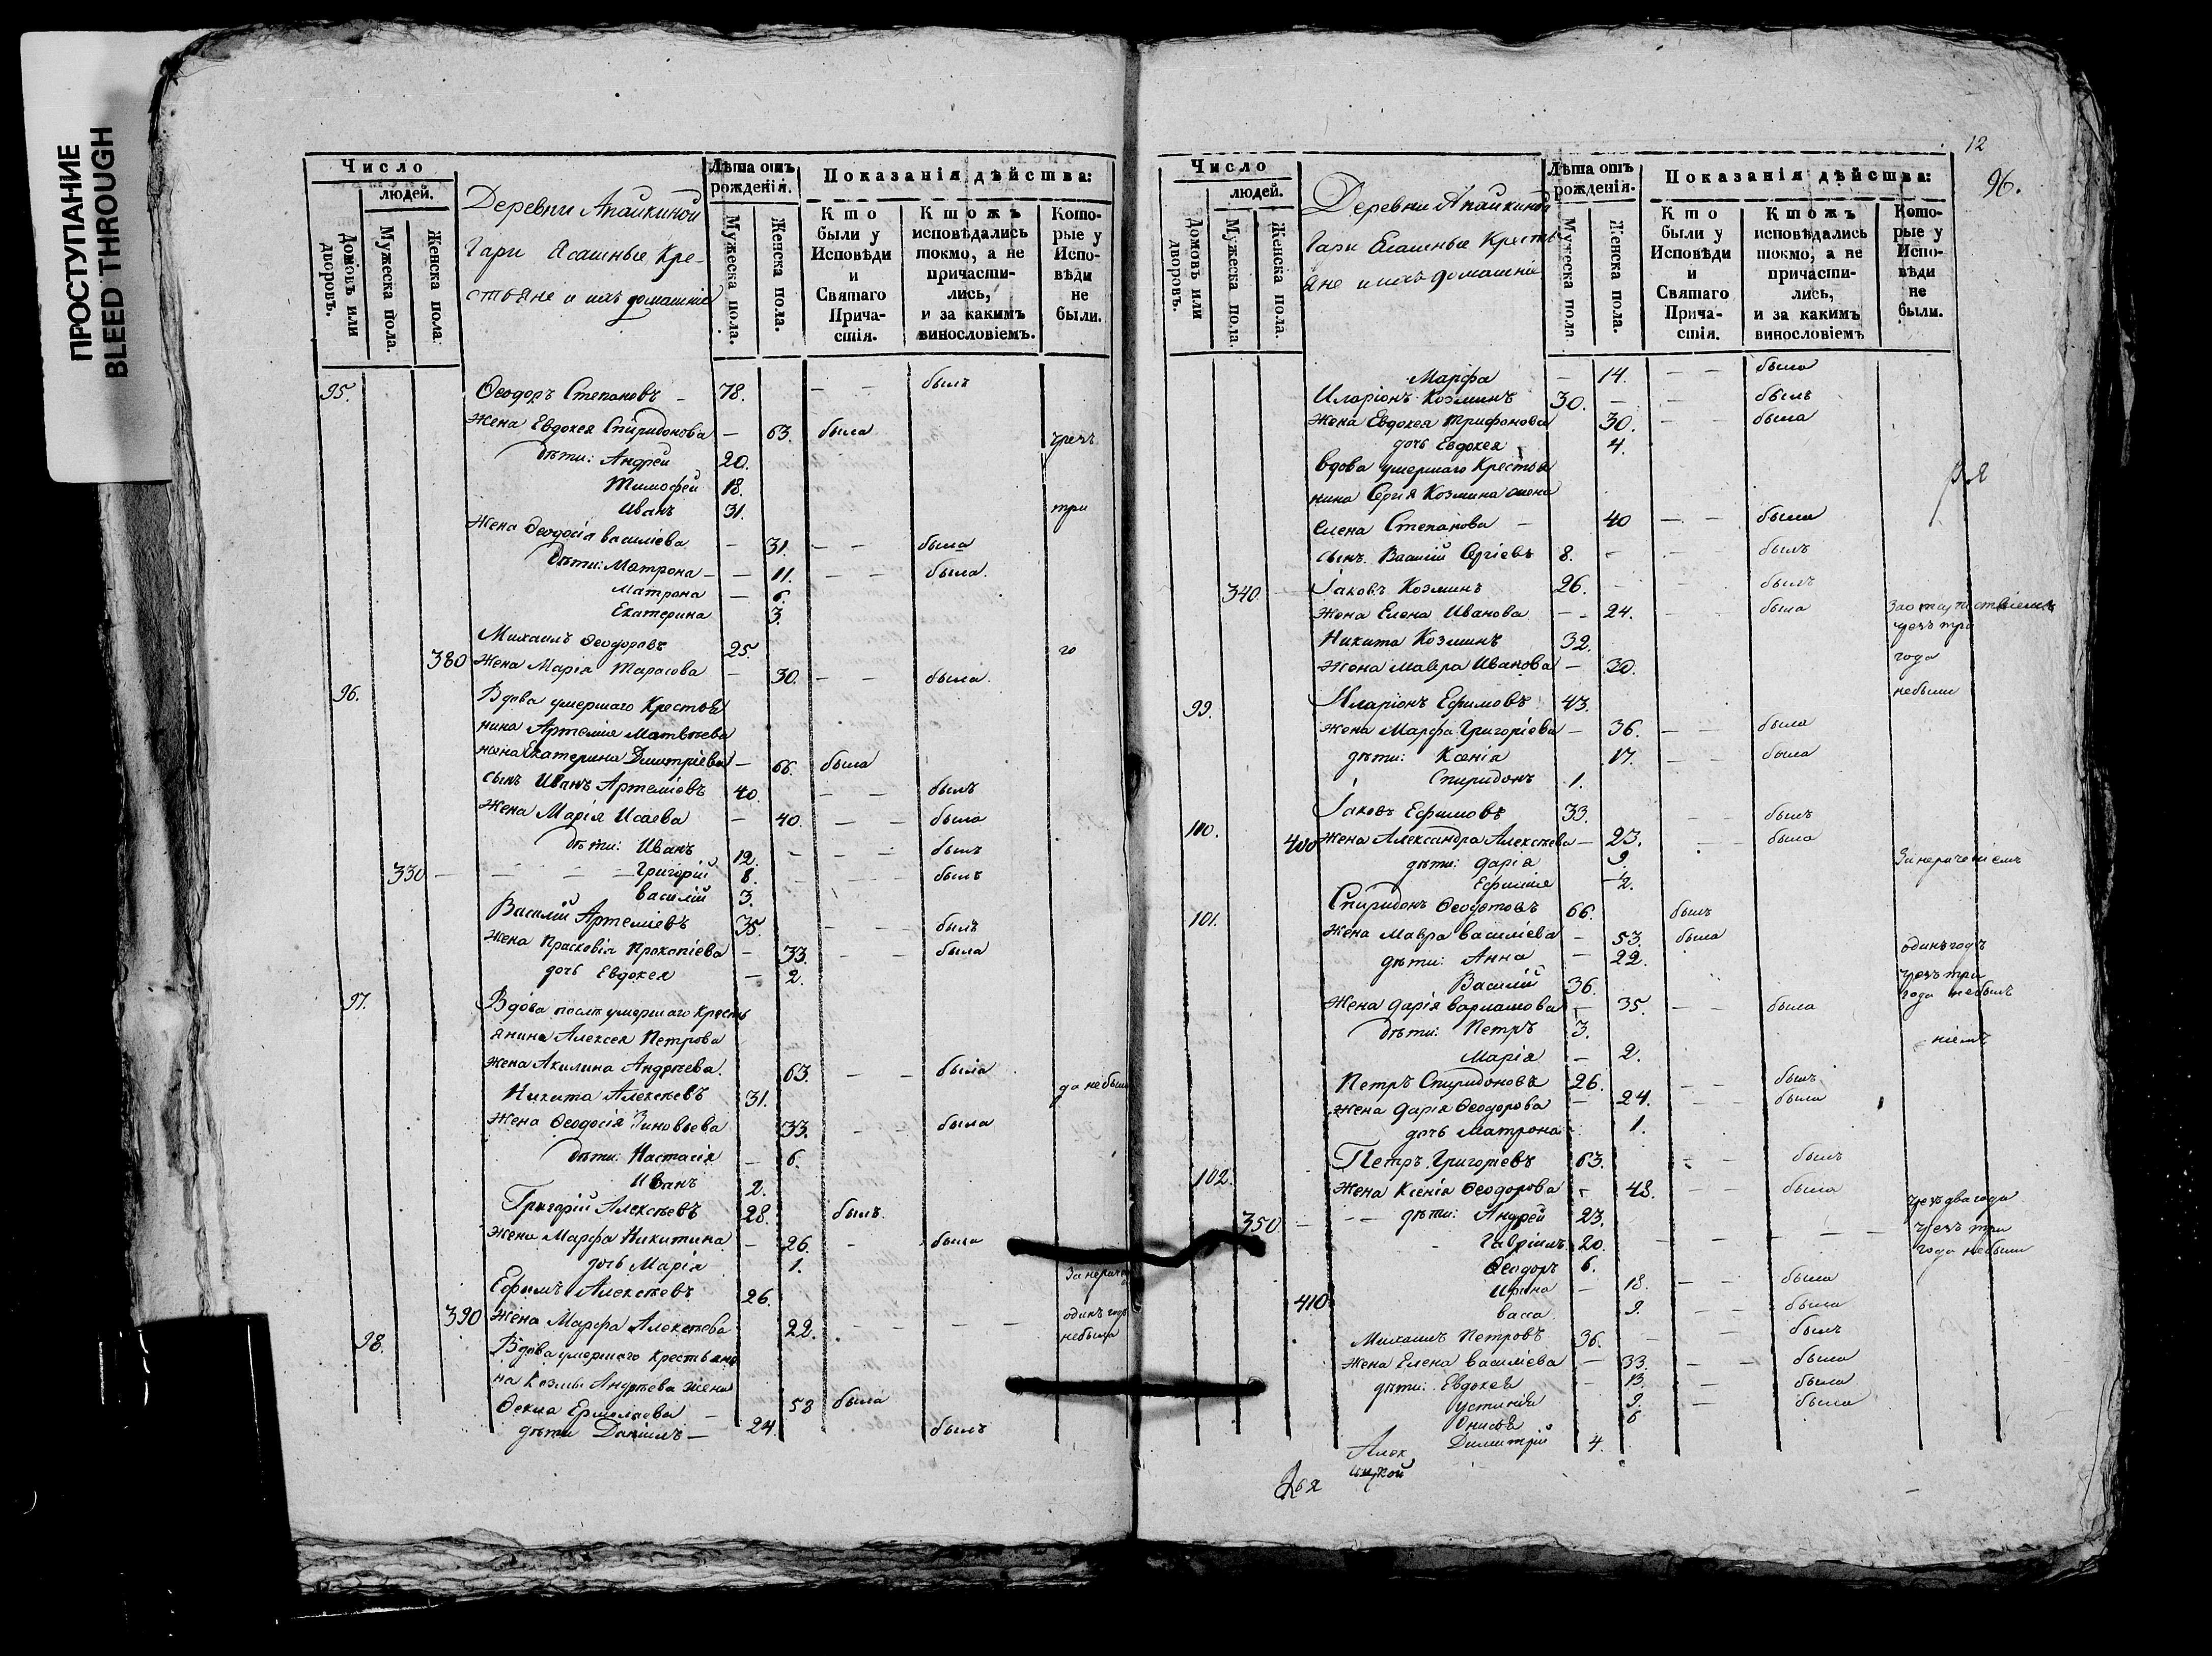 ПРОСТУПАНИЕ
BLEED THROUGH
Число
людей.
Домовъ или дворовъ.
Мужеска пола.
Женска пола
Деревни Апайкиной
Гари Ясашные Кре-
стьяне и ихъ домашніе
Лѣта отъ рожденія.
Мужеска пола.
Женска пола.
Показанія дѣйства:
Кто были у Исповѣди и Святаго Прича-стія.
Ктожъ исповѣдались токмо, а не причасти-лись, и за какимъ винословіемъ.
Кото-рые у Испо-вѣди не были.
95. Ѳеодоръ Степановъ - 78. — — былъ
Жена Евдокея Спиридонова — 63. была
чрезъ
дѣти: Андрей 20.
Тимофей 18.
Иванъ 31. три
Жена Ѳеодосія Василіева — 31. — — была
дѣти: Матрона — — 11. — — была.
Матрона — 6.
Екатерина 3.
Михаилъ Ѳеодоровъ 25. го
380 Жена Марія Тарасова — 30. — — была.
96. Вдова умершаго Крестья
нина Артемія Матвѣева
жена Екатерина Димитріева — 66. была
сынъ Иванъ Артеміевъ 40. — — былъ
Жена Марія Исаева — 40. — — была
дѣти: Иванъ 12. — — былъ
330 — — — — Григорій 8. — — былъ
Василій 3.
Василій Артеміевъ 35. — — былъ
Жена Прасковія Прокопіева — 33. — — была
дочь Евдокея — 2.
97. Вдова послѣ умершаго Кресть
янина Алексея Петрова
жена Акилина Андрѣева. 63. — — была
да небыли
Никита Алексѣевъ 31.
Жена Ѳеодосія Зиновьева 33. — была
дѣти: Настасія — 6.
Иванъ 2.
Григорій Алексѣевъ 28. былъ.
Жена Марфа Никитина — 26. - была
дочь Марія 1.
Ефимъ Алексѣевъ 26.
390 Жена Марфа Алексѣева 22. — — — — одинъ годъ
небыла
98. Вдова умершаго крестьяни
на Козмы Андрѣева жена
Ѳекла Ермолаева — 58 была
дѣти Даніилъ — 24. былъ
12
96.
Число
людей.
Домовъ или дворовъ.
Мужеска пола
Женска пола.
Деревни Апайкиной
Гари Ясашные Кресть
яне и ихъ домашніе
Лѣта отъ рожденія.
Мужеска пола
Женска пола.
Показанія дѣйства:
Кто были у Исповѣди и Святаго Прича-стія.
Ктожъ исповѣдались токмо, а не причасти-лись, и за какимъ винословіемъ
Кото-рые у Испо-вѣди не были.
Марфа — 14. — — была
Иларіонъ Козминъ 30. — — былъ
Жена Евдокея Трифонова 30. — — была
дочь Евдокея 4.
вдова умершаго Крестья
нина Сергія Козмина жена
Елена Степанова — 40 — — была
сынъ Василій Сергіевъ 8. — — былъ
340 Іаковъ Козминъ 26. — — былъ
Жена Елена Иванова — — 24. — — была
чрезъ три
Никита Козминъ 32.
Жена Мавра Иванова — 30. года
99. Иларіонъ Ефимовъ 43. небыли
жена Марфа Григоріева — 36. — — была
дѣти: Ксенія 17. — — была
Спиридонъ 1.
100. Іаковъ Ефимовъ 33. — — былъ
400 Жена Александра Алексѣева — 23. — была
дѣти: Дарія 9.
Ефимія 2.
101. Спиридонъ Ѳеодотовъ 66. былъ
Жена Мавра Василіева — 53. была
дѣти: Анна — 22. одинъ годъ
Василій 36. чрезъ три
года небылъ
Жена Дарія Варламова — 35. — — была
дѣти: Петръ 3.
Марія — 2.
Петръ Спиридоновъ 26. — — былъ
Жена Дарія Ѳеодорова — 24. — — была
дочь Матрона 1.
102. Петръ Григоріевъ 63. — — былъ
Жена Ксенія Ѳеодорова — 48. — — была
350 — — — дѣти: Андрей 23. чрезъ два года
Гавріилъ 20. — — — — чрезъ три
года небыли
Ѳеодоръ 6.
Ирина — 18. — — была
410 Васса 9. — — была
Михаилъ Петровъ 36. — — былъ
Жена Елена Василіева — 33. — — была
дѣти: Евдокея — 13. — была
Устинія 9. — была
Онисія 6
Димитрій 4.